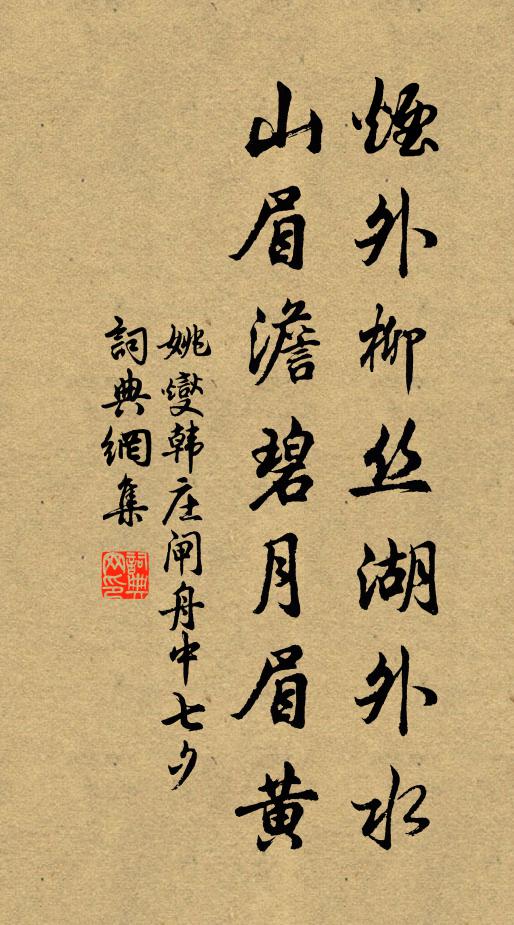 煙外柳丝湖外水
山眉澹碧月眉黄
姚燮韩庄闸舟中七夕
詞典網集
詞典网印